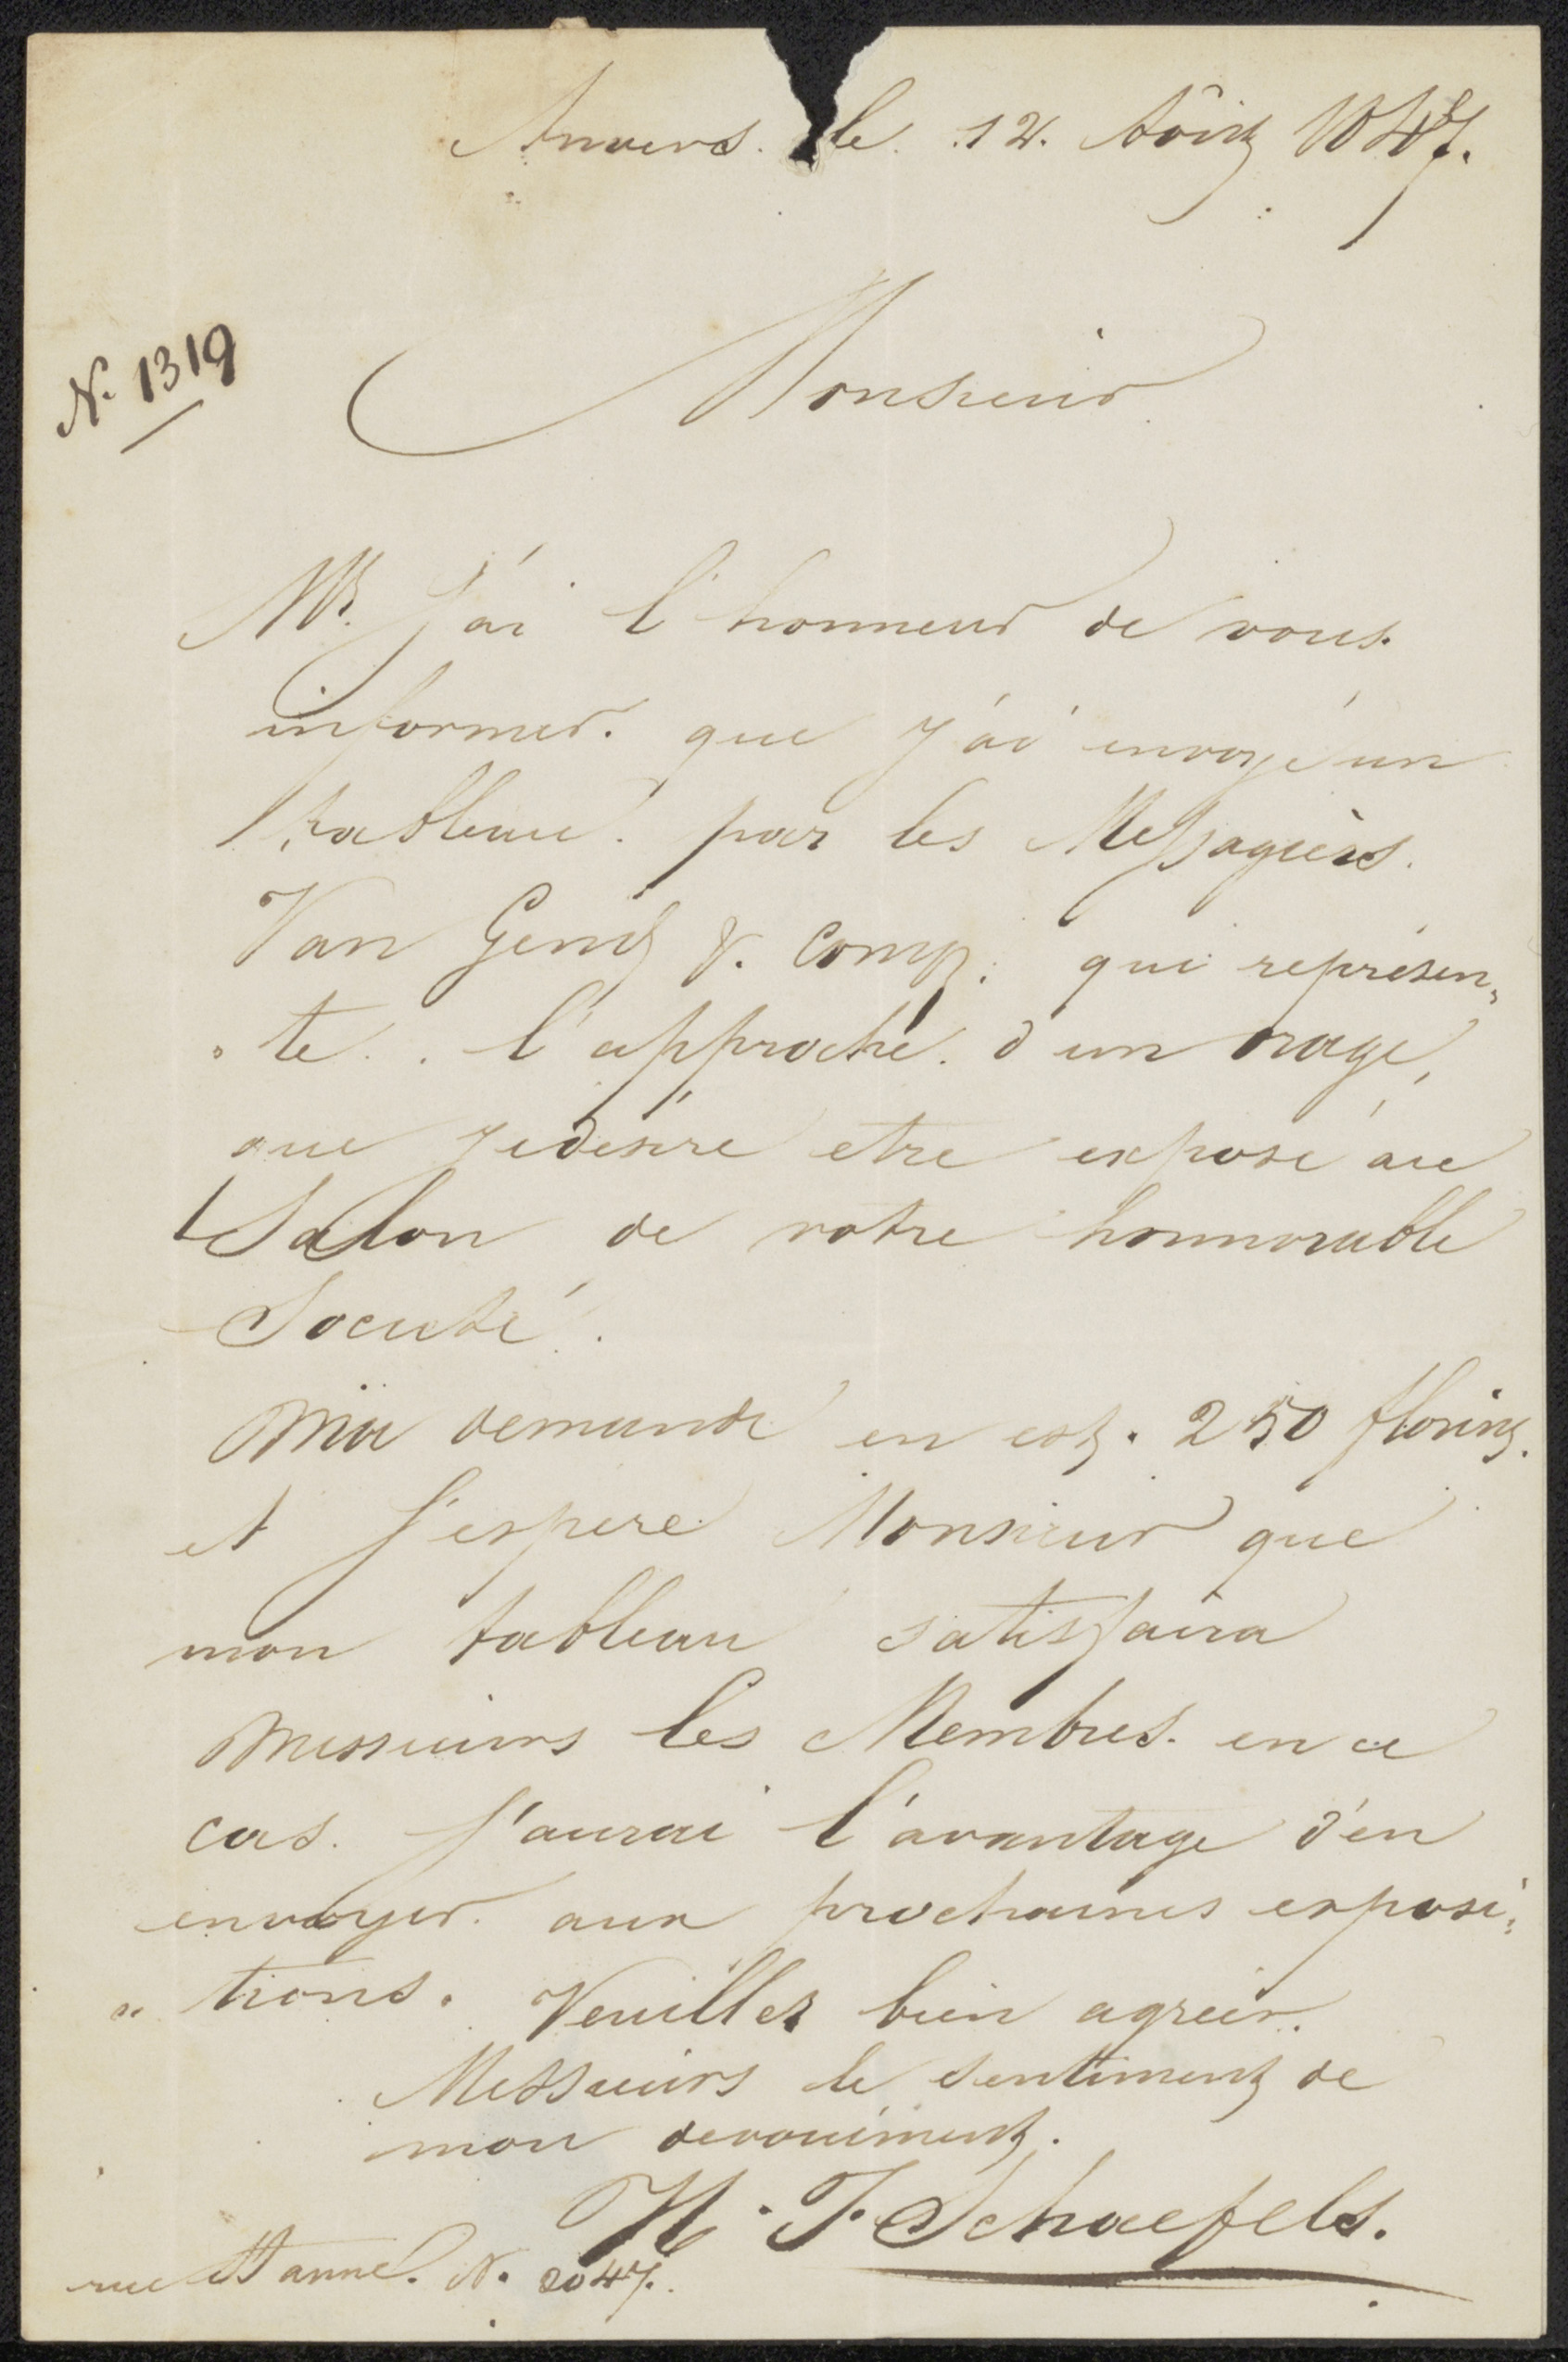 Anvers. le 12. Aôut 1847.
N. 1319
Monsieur
Mr. J'ai l'honneur de vous
informer. que j'ai envoyé un
tableau. par les Messagiers.
Van Gend & Comp. qui représen„
„te.. l'approche. d'un orage,
que je desire etre exposé au
Salon de votre honnorable
Societé.
Ma demande en est. 250 florins.
et j'espere Monsieur que
mon tableau satisfaira
Messieurs les Membres. en ce
cas. j'aurai l'avantage d'en
envoyer. aux prochaines exposi„
„tions. Veuillez bien agréer.
Messieurs le sentiment de
mon devouement.
H. F. Schaefels.
rue St anne. N. 2047.